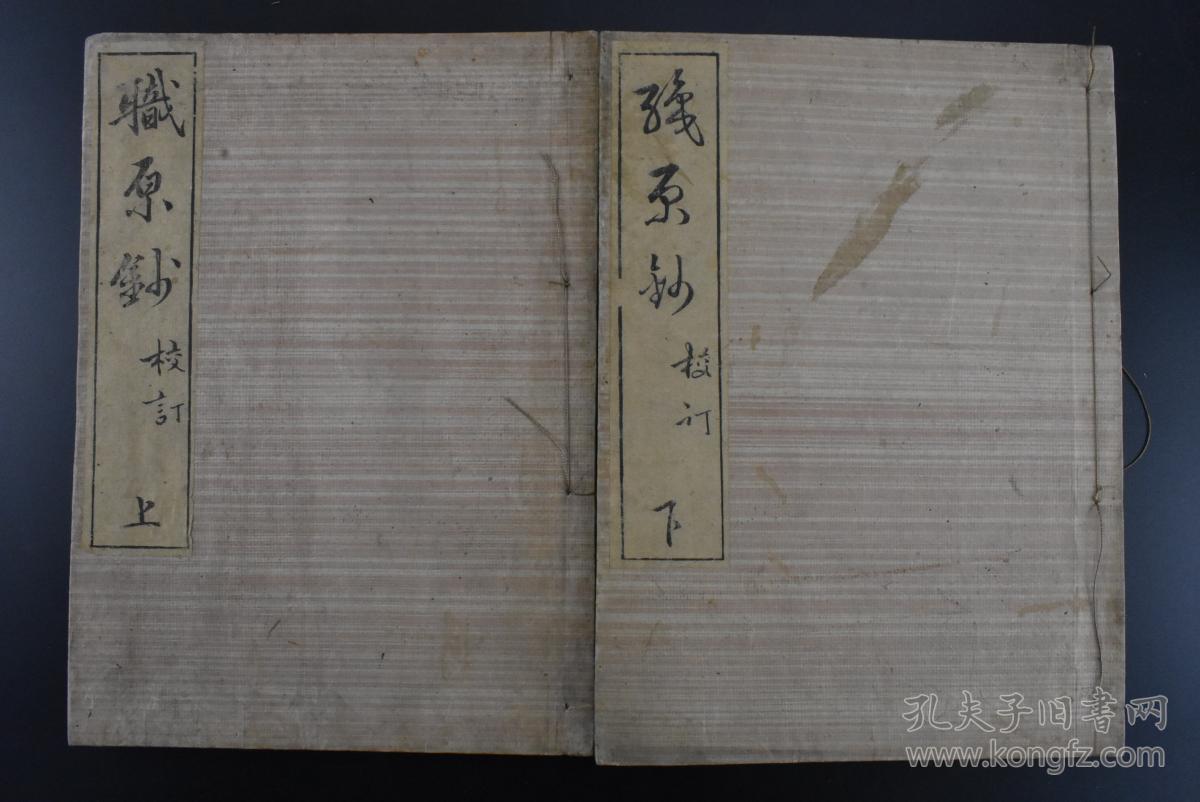 職原鈔
校訂
上
職原鈔
校訂
下
孔夫子旧書网
www.kongfz.com